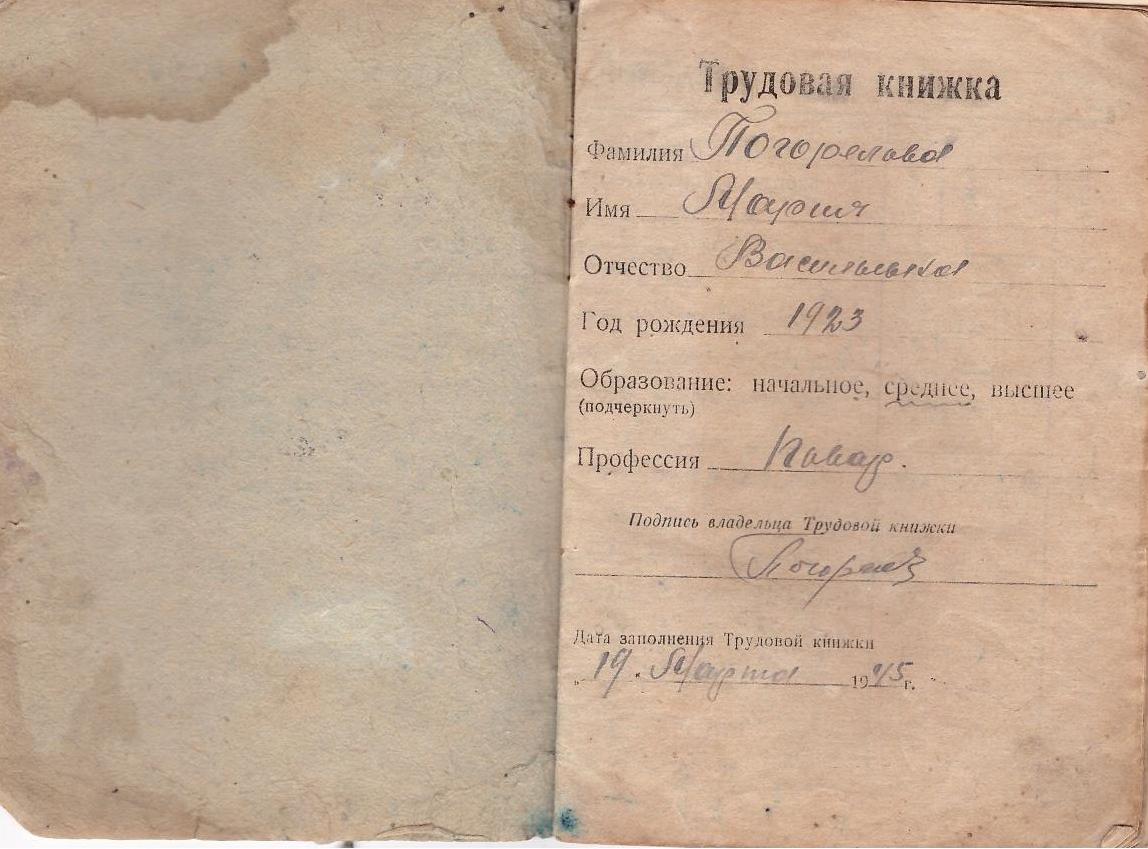 Трудовая книжка
Фамилия Погорелова
Имя Мария
Отчество Васильевна
Год рождения 1923
Образование: начальное, среднее, высшее
(подчеркнуть)
Профессия Повар.
Подпись владельца Трудовой книжки
Дата заполнения Трудовой книжки
„19“ Марта 1945 г.